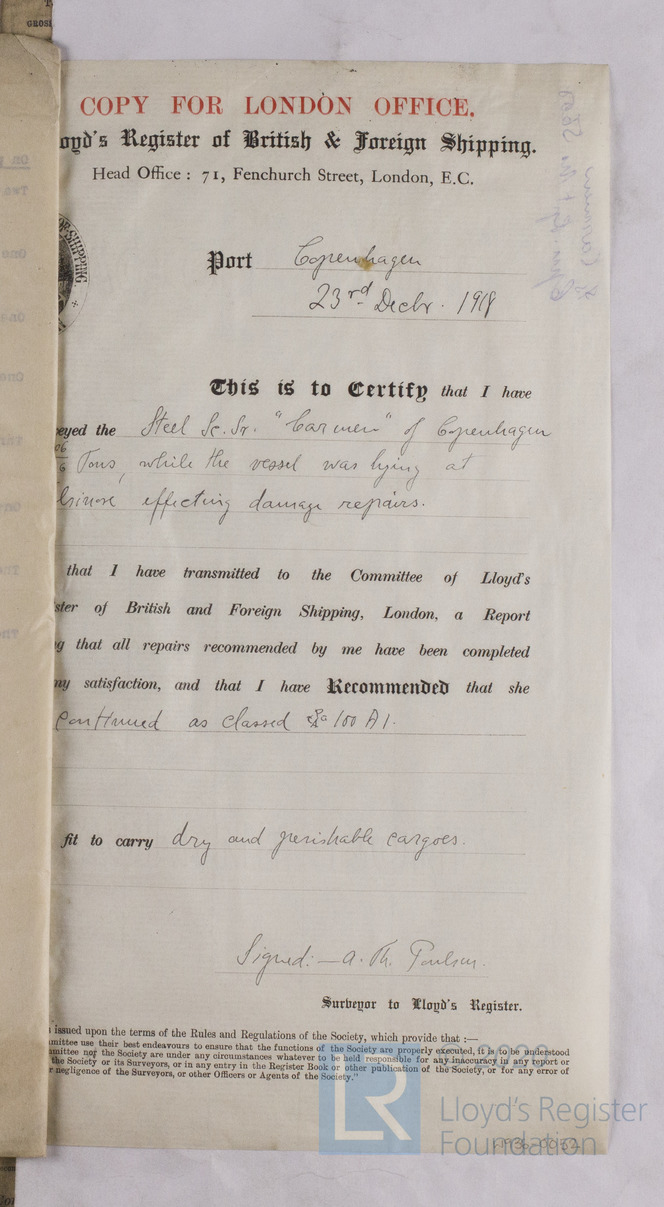 COPY FOR LONDON OFFICE.
oyd's Register of British & Foreign Shipping.
Head Office: 71, Fenchurch Street, London, E.C.
Port Copenhagen
23rd Decbr. 1918
This is to Certify that I have
eyed the Steel Sc. Sr. "Carmen" of Copenhagen
Tons, while the vessel was lying at
lsinore effecting damage repairs.
that I have transmitted to the Committee of Lloyd's
ster of British and Foreign Shipping, London, a Report
g that all repairs recommended by me have been completed
my satisfaction, and that I have Recommended that she
continued as classed 100 A1.
fit to carry dry and perishable cargoes.
Signed:— A. Th. Poulsen.
Surveyor to Lloyd's Register.
issued upon the terms of the Rules and Regulations of the Society, which provide that :—
mmittee use their best endeavours to ensure that the functions of the Society are properly executed, it is to be understood
mmittee nor the Society are under any circumstances whatever to be held responsible for any inaccuracy in any report or
the Society or its Surveyors, or in any entry in the Register Book or other publication of the Society, or for any error of
r negligence of the Surveyors, or other Officers or Agents of the Society."
LR
Lloyd's Register
Foundation